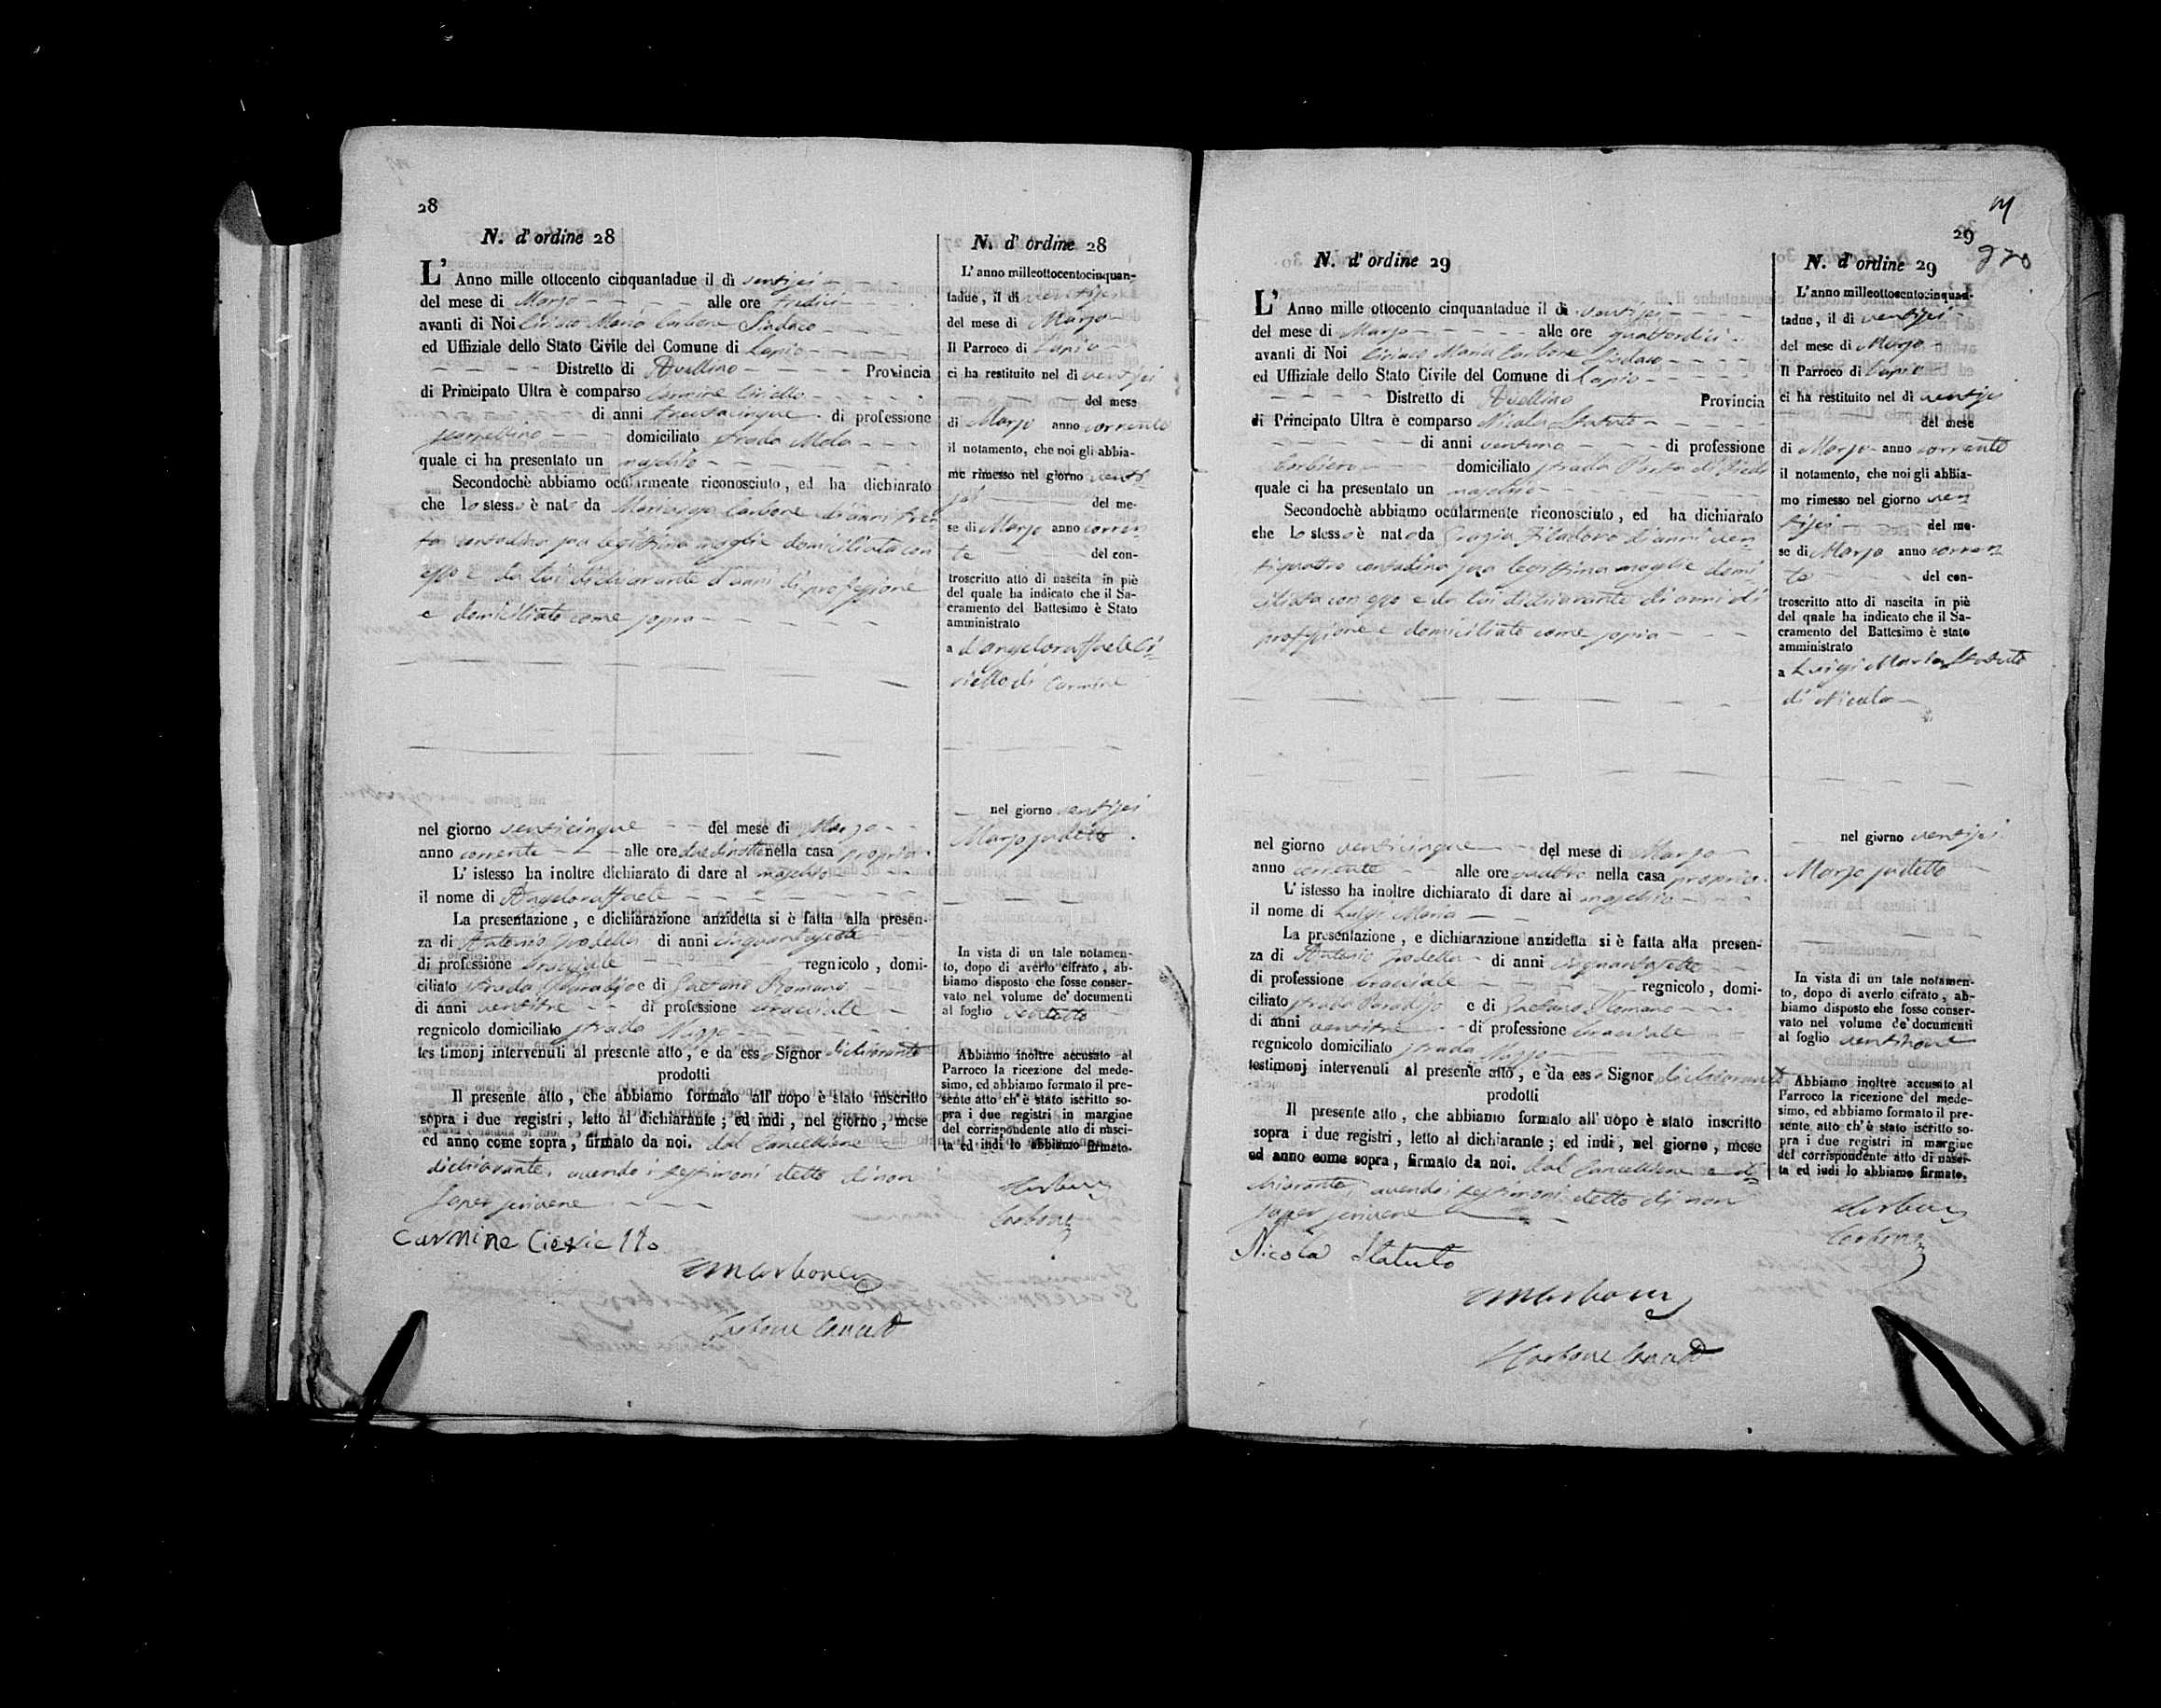 28
N. d'ordine 28
L' Anno mille ottocento cinquantadue il dì ventisei
del mese di Marzo alle ore tredici
avanti di Noi Ciriaco Maria Carbone Sindaco
ed Uffiziale dello Stato Civile del Comune di Lapio
Distretto di Avellino Provincia
di Principato Ultra è comparso Carmine Ciriello
di anni trentacinque di professione
domiciliato strada Mela
quale ci ha presentato un maschio
Secondochè abbiamo ocularmente riconosciuto, ed ha dichiarato
che lo stesso è nato da Carbone di anni tren
ta contadina sua legittima moglie domiciliata con
esso e da lui dichiarante d'anni di professione
e domiciliato come sopra
nel giorno venticinque del mese di Marzo
anno corrente alle ore nella casa propria
L' istesso ha inoltre dichiarato di dare al maschio
il nome di Angeloraffaele
La presentazione, e dichiarazione anzidetta si è fatta alla presen-
za di Antonio di anni cinquantasette
di professione bracciale regnicolo, domi-
ciliato strada Paradiso e di Gaetano Romano
di anni ventitre di professione bracciale
regnicolo domiciliato strada
testimonj intervenuti al presente atto, e da esso Signor dichiarante
prodotti
Il presente atto, che abbiamo formato all' uopo è stato inscritto
sopra i due registri, letto al dichiarante; ed indi, nel giorno, mese
ed anno come sopra, firmato da noi. dal Cancelliere e
dichiarante, avendo i testimoni detto di non
saper scrivere
Carmine Cierie llo
CMCarbone
Carbone Canc
N. d'ordine 28
L'anno milleottocentocinquan-
tadue, il di ventisei
del mese di Marzo
Il Parroco di Lapio
ci ha restituito nel dì ventisei
del mese
di Marzo anno corrente
il notamento, che noi gli abbia-
mo rimesso nel giorno venti-
sei del me-
se di Marzo anno corren-
te del con-
troscritto atto di nascita in piè
del quale ha indicato che il Sa-
cramento del Battesimo è Stato
amministrato
a d'Angeloraffaele Ci-
riello di Carmine
nel giorno ventisei
Marzo sudetto
In vista di un tale notamen-
to, dopo di averlo cifrato, ab-
biamo disposto che fosse conser-
vato nel volume de' documenti
al foglio ventotto
Abbiamo inoltre accusato al
Parroco la ricezione del mede-
simo, ed abbiamo formato il pre-
sente atto ch'è stato iscritto so-
pra i due registri in margine
del corrispondente atto di nasci-
ta ed indi lo abbiamo firmato.
Carbone
29
270
N. d'ordine 29
L' Anno mille ottocento cinquantadue il dì ventisei
del mese di Marzo alle ore quattordici
avanti di Noi Ciriaco Maria Carbone Sindaco
ed Uffiziale dello Stato Civile del Comune di Lapio
Distretto di Avellino Provincia
di Principato Ultra è comparso Nicola Statuto
di anni ventuno di professione
barbiere domiciliato strada
quale ci ha presentato un maschio
Secondochè abbiamo ocularmente riconosciuto, ed ha dichiarato
che lo stesso è nato da Grazia di anni ven
tiquattro contadina sua legittima moglie domi-
ciliata con esso e da lui dichiarante di anni di
professione e domiciliato come sopra
nel giorno venticinque del mese di Marzo
anno corrente alle ore quattro nella casa propria
L' istesso ha inoltre dichiarato di dare al maschio
il nome di Luigi Maria
La presentazione, e dichiarazione anzidetta si è fatta alla presen-
za di Antonio di anni cinquantasette
di professione bracciale regnicolo, domi-
ciliato strada Paradiso e di Gaetano Romano
di anni ventitre di professione bracciale
regnicolo domiciliato strada
testimonj intervenuti al presente atto, e da esso Signor dichiarante
prodotti
Il presente atto, che abbiamo formato all' uopo è stato inscritto
sopra i due registri, letto al dichiarante; ed indi, nel giorno, mese
ed anno come sopra, firmato da noi. dal Cancelliere e di-
chiarante, avendo i testimoni detto di non
saper scrivere
Nicola Statuto
CMCarbone
Carbone Canc
N. d'ordine 29
L'anno milleottocentocinquan-
tadue, il di ventisei
del mese di Marzo
Il Parroco di Lapio
ci ha restituito nel dì ventisei
del mese
di Marzo anno corrente
il notamento, che noi gli abbia-
mo rimesso nel giorno ven
tisei del me-
se di Marzo anno corren
te del con-
troscritto atto di nascita in piè
del quale ha indicato che il Sa-
cramento del Battesimo è stato
amministrato
a Luigi Maria Statuto
di Nicola
nel giorno ventisei
Marzo sudetto
In vista di un tale notamen-
to, dopo di averlo cifrato, ab-
biamo disposto che fosse conser-
vato nel volume de' documenti
al foglio ventinove
Abbiamo inoltre accusato al
Parroco la ricezione del mede-
simo, ed abbiamo formato il pre-
sente atto ch'è stato iscritto so-
pra i due registri in margine
del corrispondente atto di nasci-
ta ed indi lo abbiamo firmato.
Carbone